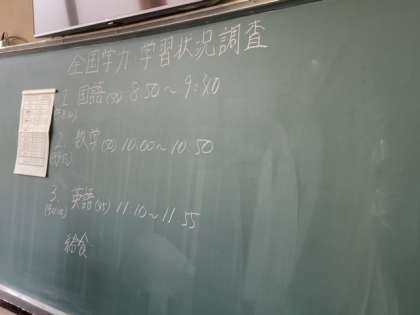 全国学力・学習状況調査
1. 国語(50) 8:50〜9:40
2. 数学(50) 10:00〜10:50
3. 英語(45) 11:10〜11:55
給食